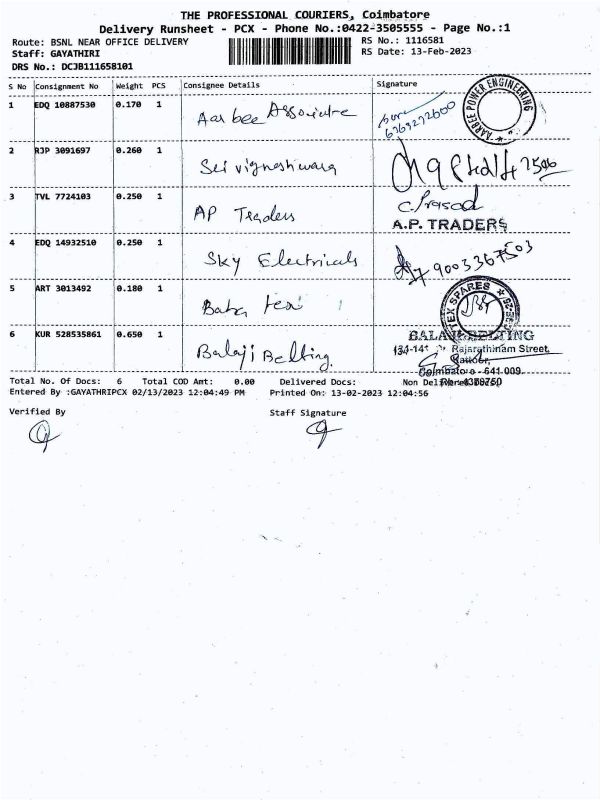 THE PROFESSIONAL COURIERS, Coimbatore
Delivery Runsheet - PCX - Phone No.:0422-3505555 - Page No.:1
Route: BSNL NEAR OFFICE DELIVERY RS No.: 1116581
Staff: GAYATHIRI RS Date: 13-Feb-2023
DRS No.: DCJB111658101
S No Consignment No Weight PCS Consignee Details Signature
1 EDQ 10887530 0.170 1 Aarbee Associate
AARBEE POWER ENGINEERING
2 RJP 3091697 0.260 1 Sri vigneshwara
3 TVL 7724103 0.250 1 AP Traders C. Prasad
A.P. TRADERS
4 EDQ 14932510 0.250 1 Sky Electricals 9003367503
5 ART 3013492 0.180 1 Baba tex
TEX SPARES
6 KUR 528535861 0.650 1 Balaji Belting
BALAJI BELTING
Rajarathinam Street,
Kattoor,
Coimbatore - 641 009.
Total No. Of Docs: 6 Total COD Amt: 0.00 Delivered Docs: Non Delivered Docs:
Entered By :GAYATHRIPCX 02/13/2023 12:04:49 PM Printed On: 13-02-2023 12:04:56
Verified By Staff Signature